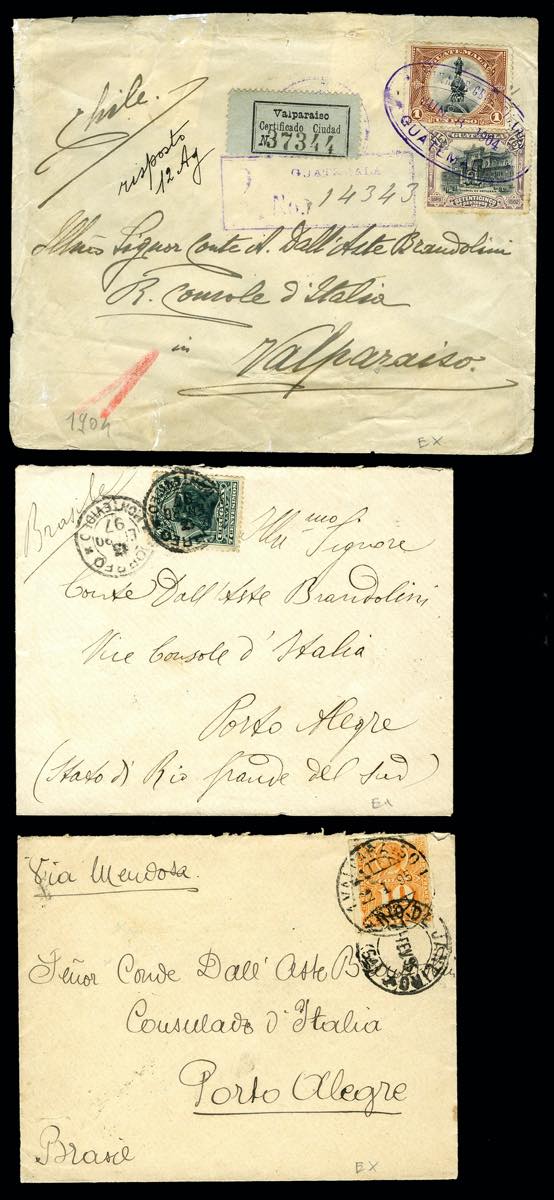 Chile.
risposto
12 Ag
Valparaiso
Certificado Ciudad
No 37344
GUATEMALA
No. 14343
GUATEMALA
1 UN PESO 1
GUATEMALA
GUATEMALA
SETENTICINCO
Illmo Signor Conte A. Dall'Aste Brandolini
R. Console d'Italia
in
Valparaiso.
1904
EX
Brasile
CORREO
MONTEVIDEO
13
97
Ill mo Signore
Conte Dall'Aste Brandolini
Vice Console d'Italia
Porto Alegre
(Stato di Rio Grande del Sud)
EX
Via Mendosa
VALPARAISO
1 95
10
RIO DE JANEIRO
FEV
Señor Conde Dall'Aste
Consulado d'Italia
Porto Alegre
Brasil
EX